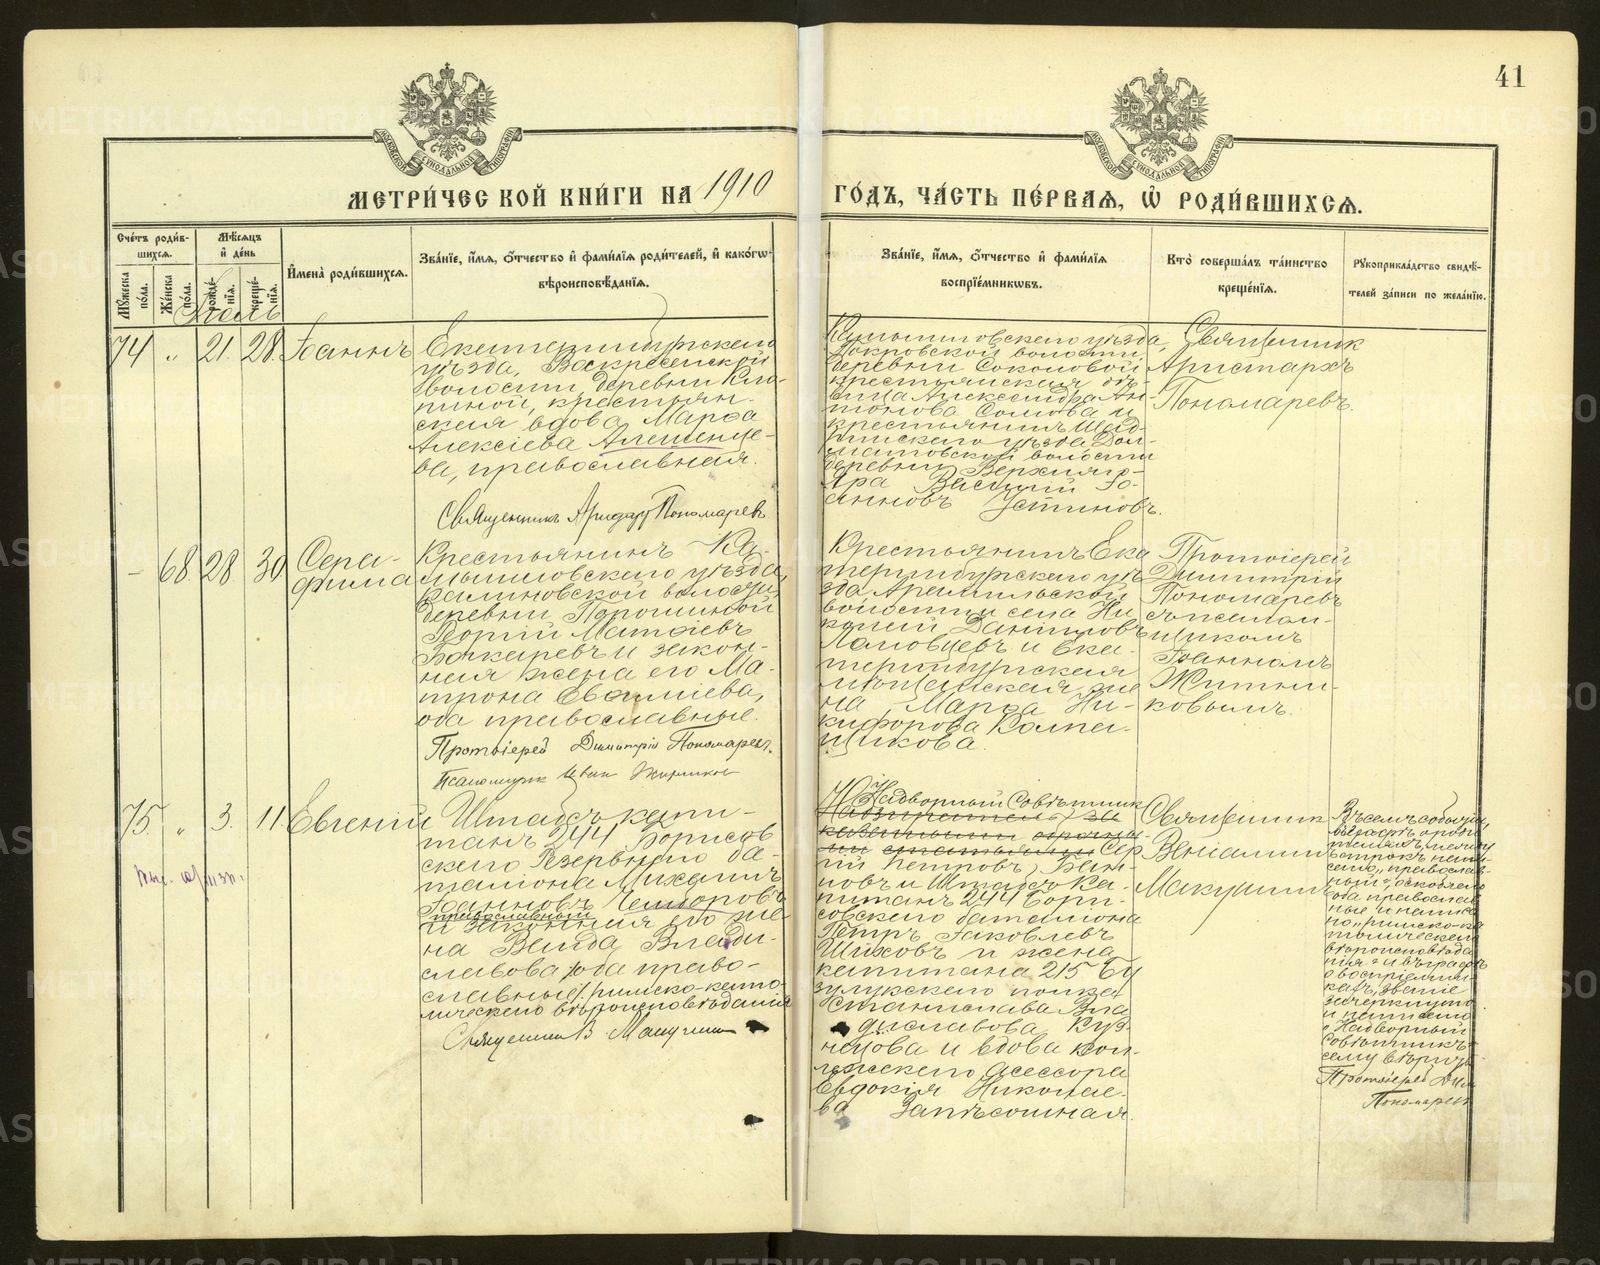 41
МОСКОВСКОЙ СѴНОДАЛЬНОЙ ТИПОГРАФІИ
МОСКОВСКОЙ СѴНОДАЛЬНОЙ ТИПОГРАФІИ
МЕТРИ́ЧЕС КОЙ КНИ́ГИ НА 1910
ГО́ДЪ, ЧА́СТЬ ПЕ́РВАѦ, Ѡ҆ РОДИ́ВШИХСѦ.
Сче́тъ роди́в-
шихсѧ.
Мꙋ́жеска по́ла.
Же́нска по́ла.
Мѣ́сѧцъ и҆ де́нь
рожде́-
нїѧ.
креще́-
нїѧ.
Іюль
И҆мена̀ роди́вшихсѧ.
Зва́нїе, и҆́мѧ, ѻ҆́тчество и҆ фами́лїѧ роди́телей, и҆ како́гѡ
вѣроисповѣ́данїѧ.
Зва́нїе, и҆́мѧ, ѻ҆́тчество и҆ фами́лїѧ
воспрїе́мникѡвъ.
Кто̀ соверша́лъ та́инство
креще́нїѧ.
Рꙋкоприкла́дство свидѣ́-
телей за́писи по жела́нїю.
74 „ 21. 28. Іоаннъ
Екатеринбургскаго
уѣзда, Воскресенской
волости, деревни Кло-
пиной, крестьян-
ская вдова Марѳа
Алексіева Алешинце-
ва, православная.
Священникъ Аристархъ Пономаревъ
Камышловскаго уѣзда,
Покровской волости,
деревни Соколовой
крестьянская дѣ-
вица Александра Ан-
тонова Сомова и
крестьянинъ Шад-
ринскаго уѣзда Дол-
матовской волости
деревни Верхняго-
Яра Василій Іо-
анновъ Устиновъ.
Священник
Аристархъ
Пономаревъ.
– 68 28 30 Сера-
фима
Крестьянинъ Ка-
мышловскаго уѣзда,
Калиновской волости,
деревни Порошиной
Георгій Матѳіевъ
Бочкаревъ и закон-
ная жена его Ма-
трона Евѳиміева,
оба православные.
Протоіерей Димитрій Пономаревъ.
Псаломщик Иван Житников
Крестьянинъ Ека
теринбургскаго уѣ
зда Арамильской
волости и села Ни
колай Даніиловъ
и Ека-
теринбургская
мѣщанская же
на Марѳа Ни-
кифорова Колпа-
щикова.
Протоіерей
Димитрій
Пономаревъ
съ псалом-
щикомъ
Іоанномъ
Житни-
ковымъ.
75. „ 3. 11. Евгеній
Штабсъ-капи-
танъ 244 Борисов
скаго Резервнаго ба-
таліона Михаилъ
Іоанновъ
православный
и законная его же
на Ванда Влади-
славова /оба право-
славные/. римско-като-
лическаго вѣроисповѣданія
Священник В Макушин
Надворный Совѣтник
казенными оброчны-
ми статьями Сер
гій Петровъ
новъ и Штабсъ-Ка-
питанъ 244 Бори-
совскаго баталіона
Петръ Яковлевъ
Шиховъ и жена
капитана 215 Бу
зулукскаго полка
Станислава Вла
дыславова Куз-
нецова и вдова кол-
лежскаго ассесора
Евдокія Николае-
ва Запѣсошная.
Священник
Веніамин
Макушинъ
Въ семъ событіи,
въ графѣ о роди
теляхъ, между
строкъ напи-
сано „православ-
ный“,
оба православ-
ные и написа
но „римско-ка
толическаго
вѣроисповѣда
нія“ и въ графѣ
о воспріемни-
кахъ, званіе
зачеркнуто
и написано
„Надворный
Совѣтникъ“
сему вѣрить
Протоіерей Дим
Пономаревъ